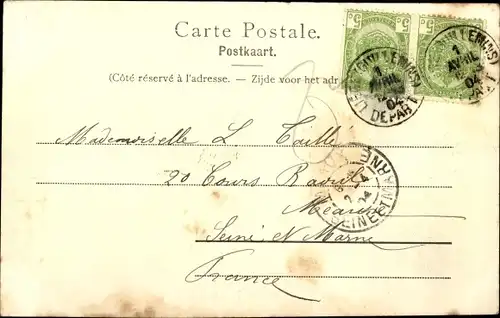 Carte Postale.
Postkaart.
(Côté réservé à l'adresse. — Zijde voor het adr
5c 5c
(GUILLEMINS)
1
AVRIL
04
DEPART
(GUILLEMINS)
1
AVRIL
04
DEPART
Mademoiselle L Taille
20 Cours Raoult
Meaux
SEINE ET MARNE
04
Seine et Marne
France